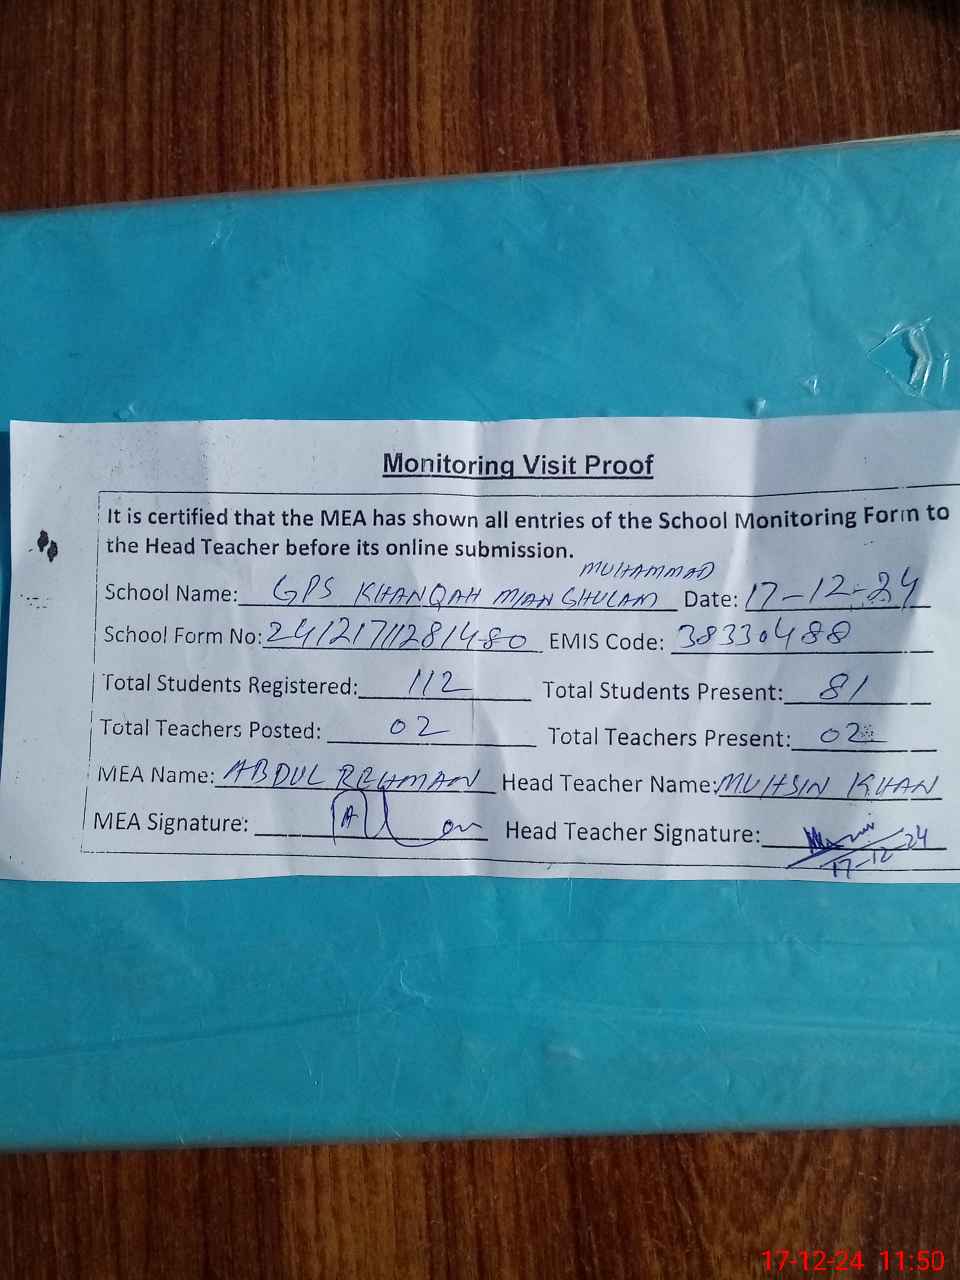 Monitoring Visit Proof
It is certified that the MEA has shown all entries of the School Monitoring Form to
the Head Teacher before its online submission.
MUHAMMAD
School Name: GPS KHANQAH MIAN GHULAM Date: 17-12-24
School Form No: 24121711281480 EMIS Code: 38330488
Total Students Registered: 112 Total Students Present: 81
Total Teachers Posted: 02 Total Teachers Present: 02
MEA Name: ABDUL REHMAN Head Teacher Name: MUHSIN KHAN
MEA Signature: Head Teacher Signature:
17-12-24
17-12-24 11:50